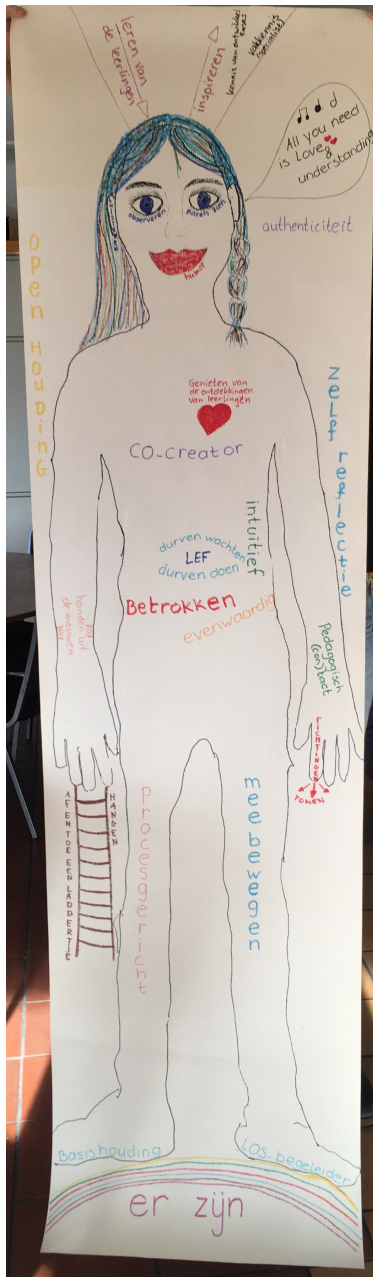 leren van
de leerlingen
inspireren
kennis van ontwikkel
fases
vakkennis
(specialist)
All you need
is Love
&
understanding
observeren
parels zien
humor
authenticiteit
open HOUDinG
zelf reflectie
Genieten van
de ontdekkingen
van leerlingen
CO-creator
intuïtief
durven wachten
LEF
durven doen
Betrokken
evenwaardig
handen uit
de mouwen
Pedagogisch
(con)tact
RICHTINGEN
TONEN
AF EN TOE EEN LADDERTJE
HANGEN
procesgericht
meebewegen
Basishouding
LOS-begeleider
er zijn